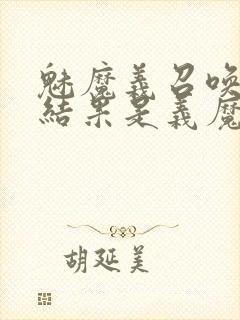 魅魔義召喚
結果是義魔
胡延美